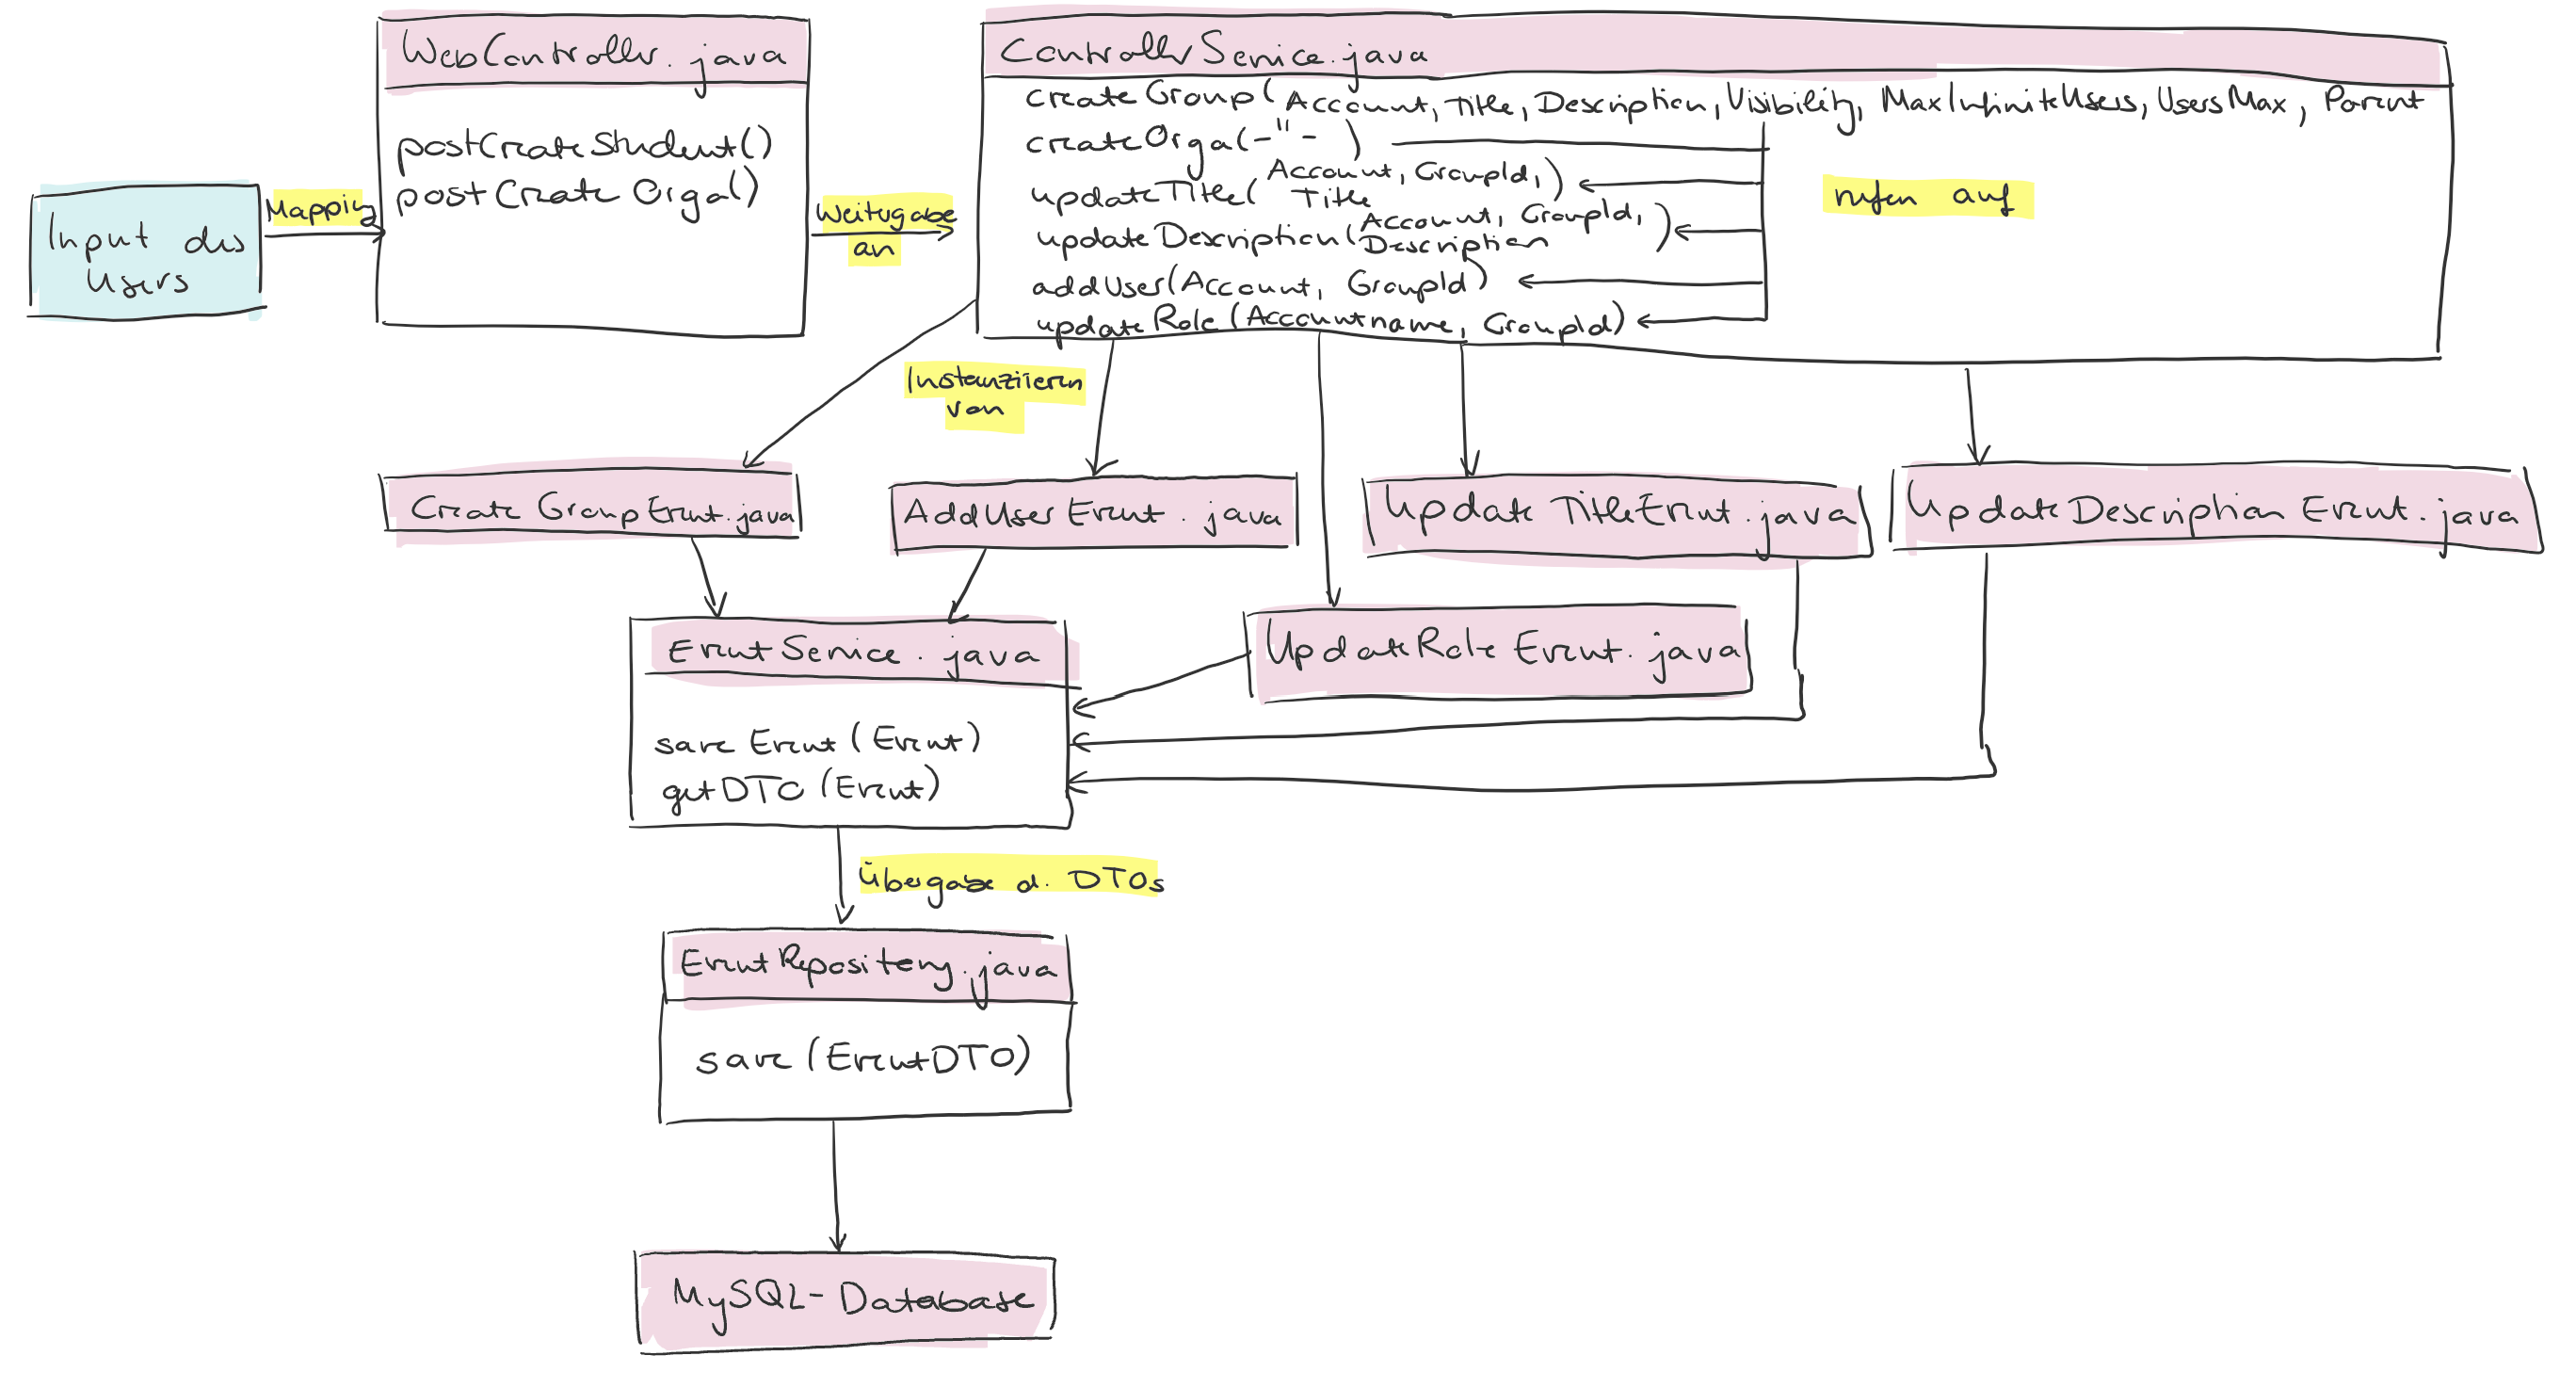 WebController.java
postCreateStudent()
postCreateOrga()
Input des
Users
Mapping
Weitergabe
an
ControllerService.java
createGroup(Account, Title, Description, Visibility, MaxInfiniteUsers, UsersMax, Parent
createOrga(-"-)
updateTitle(Account, GroupId,
Title)
updateDescription(Account, GroupId,
Description)
addUser(Account, GroupId)
updateRole(Accountname, GroupId)
rufen auf
Instanziieren
von
CreateGroupEvent.java
AddUserEvent.java
UpdateTitleEvent.java
UpdateDescriptionEvent.java
EventService.java
saveEvent(Event)
getDTO(Event)
UpdateRoleEvent.java
Übergabe d. DTOs
EventRepository.java
save(EventDTO)
MySQL-Database